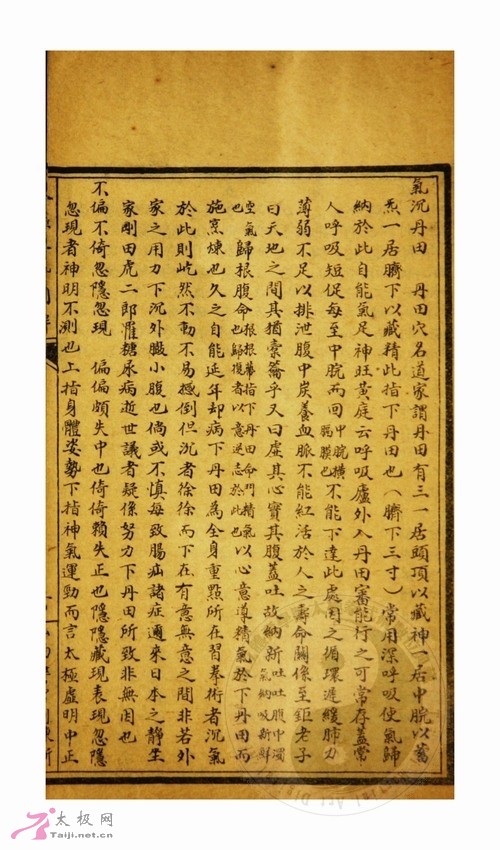 氣沉丹田　丹田穴名道家謂丹田有三一居頭頂以藏神一居中脘以蓄
炁一居臍下以藏精此指下丹田也（臍下三寸）常用深呼吸使氣歸
納於此自能氣足神旺黃庭云呼吸廬外入丹田審能行之可常存蓋常
人呼吸短促每至中脘而回中脘橫膈膜也不能下達此處因之循環遲緩肺力
薄弱不足以排泄腹中炭養血脈不能紅活於人之壽命關係至鉅老子
曰天地之間其猶橐籥乎又曰虛其心實其腹蓋吐故納新吐吐腹中濁氣納吸新鮮
空氣也歸根復命根根蒂指下丹田命門精氣也歸復者以意逆志於此也以心意導精氣於下丹田而
施烹煉也久之自能延年却病下丹田為全身重點所在習拳術者沉氣
於此則屹然不動不易撼倒但沉者徐徐而下在有意無意之間非若外
家之用力下沉外臌小腹也倘或不慎每致腸疝諸症邇來日本之靜坐
家剛田虎二郎罹糖尿病逝世議者疑係努力下丹田所致非無因也
不偏不倚忽隱忽現　偏偏頗失中也倚倚賴失正也隱隱藏現表現忽隱
忽現者神明不測也上指身體姿勢下指神氣運動而言太極虛明中正
太极网
Taiji.net.cn